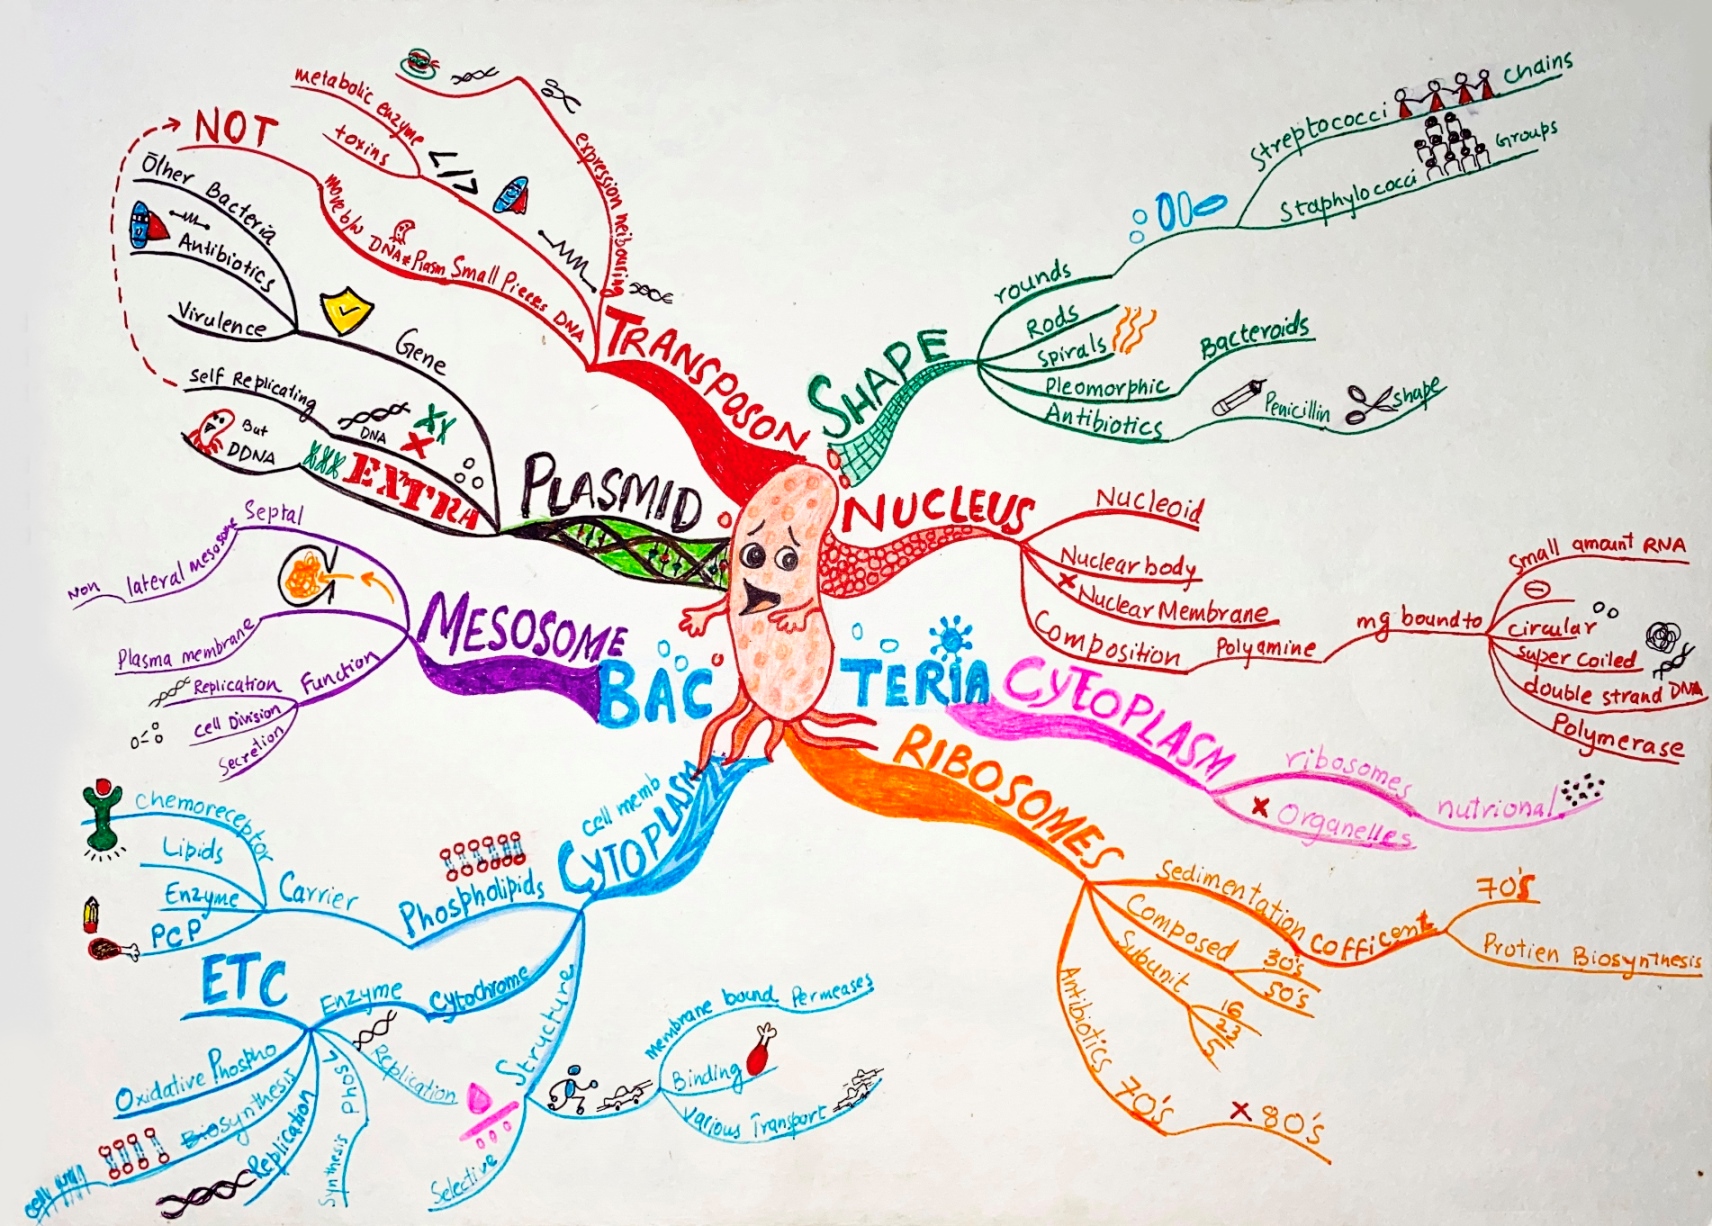 BAC TERIA
TRANSPOSON
expression neibouring
metabolic enzyme
toxins
</>
Small Pieces DNA
move b/w DNA & Plasm
NOT
PLASMID
Gene
Other Bacteria
Antibiotics
Virulence
Self Replicating
DNA
EXTRA
But
DDNA
MESOSOME
Septal
lateral mesosome
Non
Plasma membrane
Function
Replication
cell Division
Secretion
CYTOPLASM
cell memb
Phospholipids
Carrier
chemoreceptor
Lipids
Enzyme
PCP
Cytochrome
Enzyme
ETC
Oxidative Phospho
Biosynthesis
cell wall
Replication
Phos
Synthesis
Replication
Structure
membrane bound Permeases
Binding
Various Transport
Selective
SHAPE
rounds
Streptococci
Chains
Staphylococci
Groups
Rods
Spirals
Pleomorphic
Bacteroids
Antibiotics
Penicillin
shape
NUCLEUS
Nucleoid
Nuclear body
Nuclear Membrane
Composition
Polyamine
mg bound to
Small amount RNA
circular
super coiled
double strand DNA
Polymerase
CYTOPLASM
ribosomes
Organelles
nutrional
RIBOSOMES
Sedimentation Cofficent
70's
Protien Biosynthesis
Composed
30's
50's
Subunit
16
23
5
Antibiotics
70's
80's